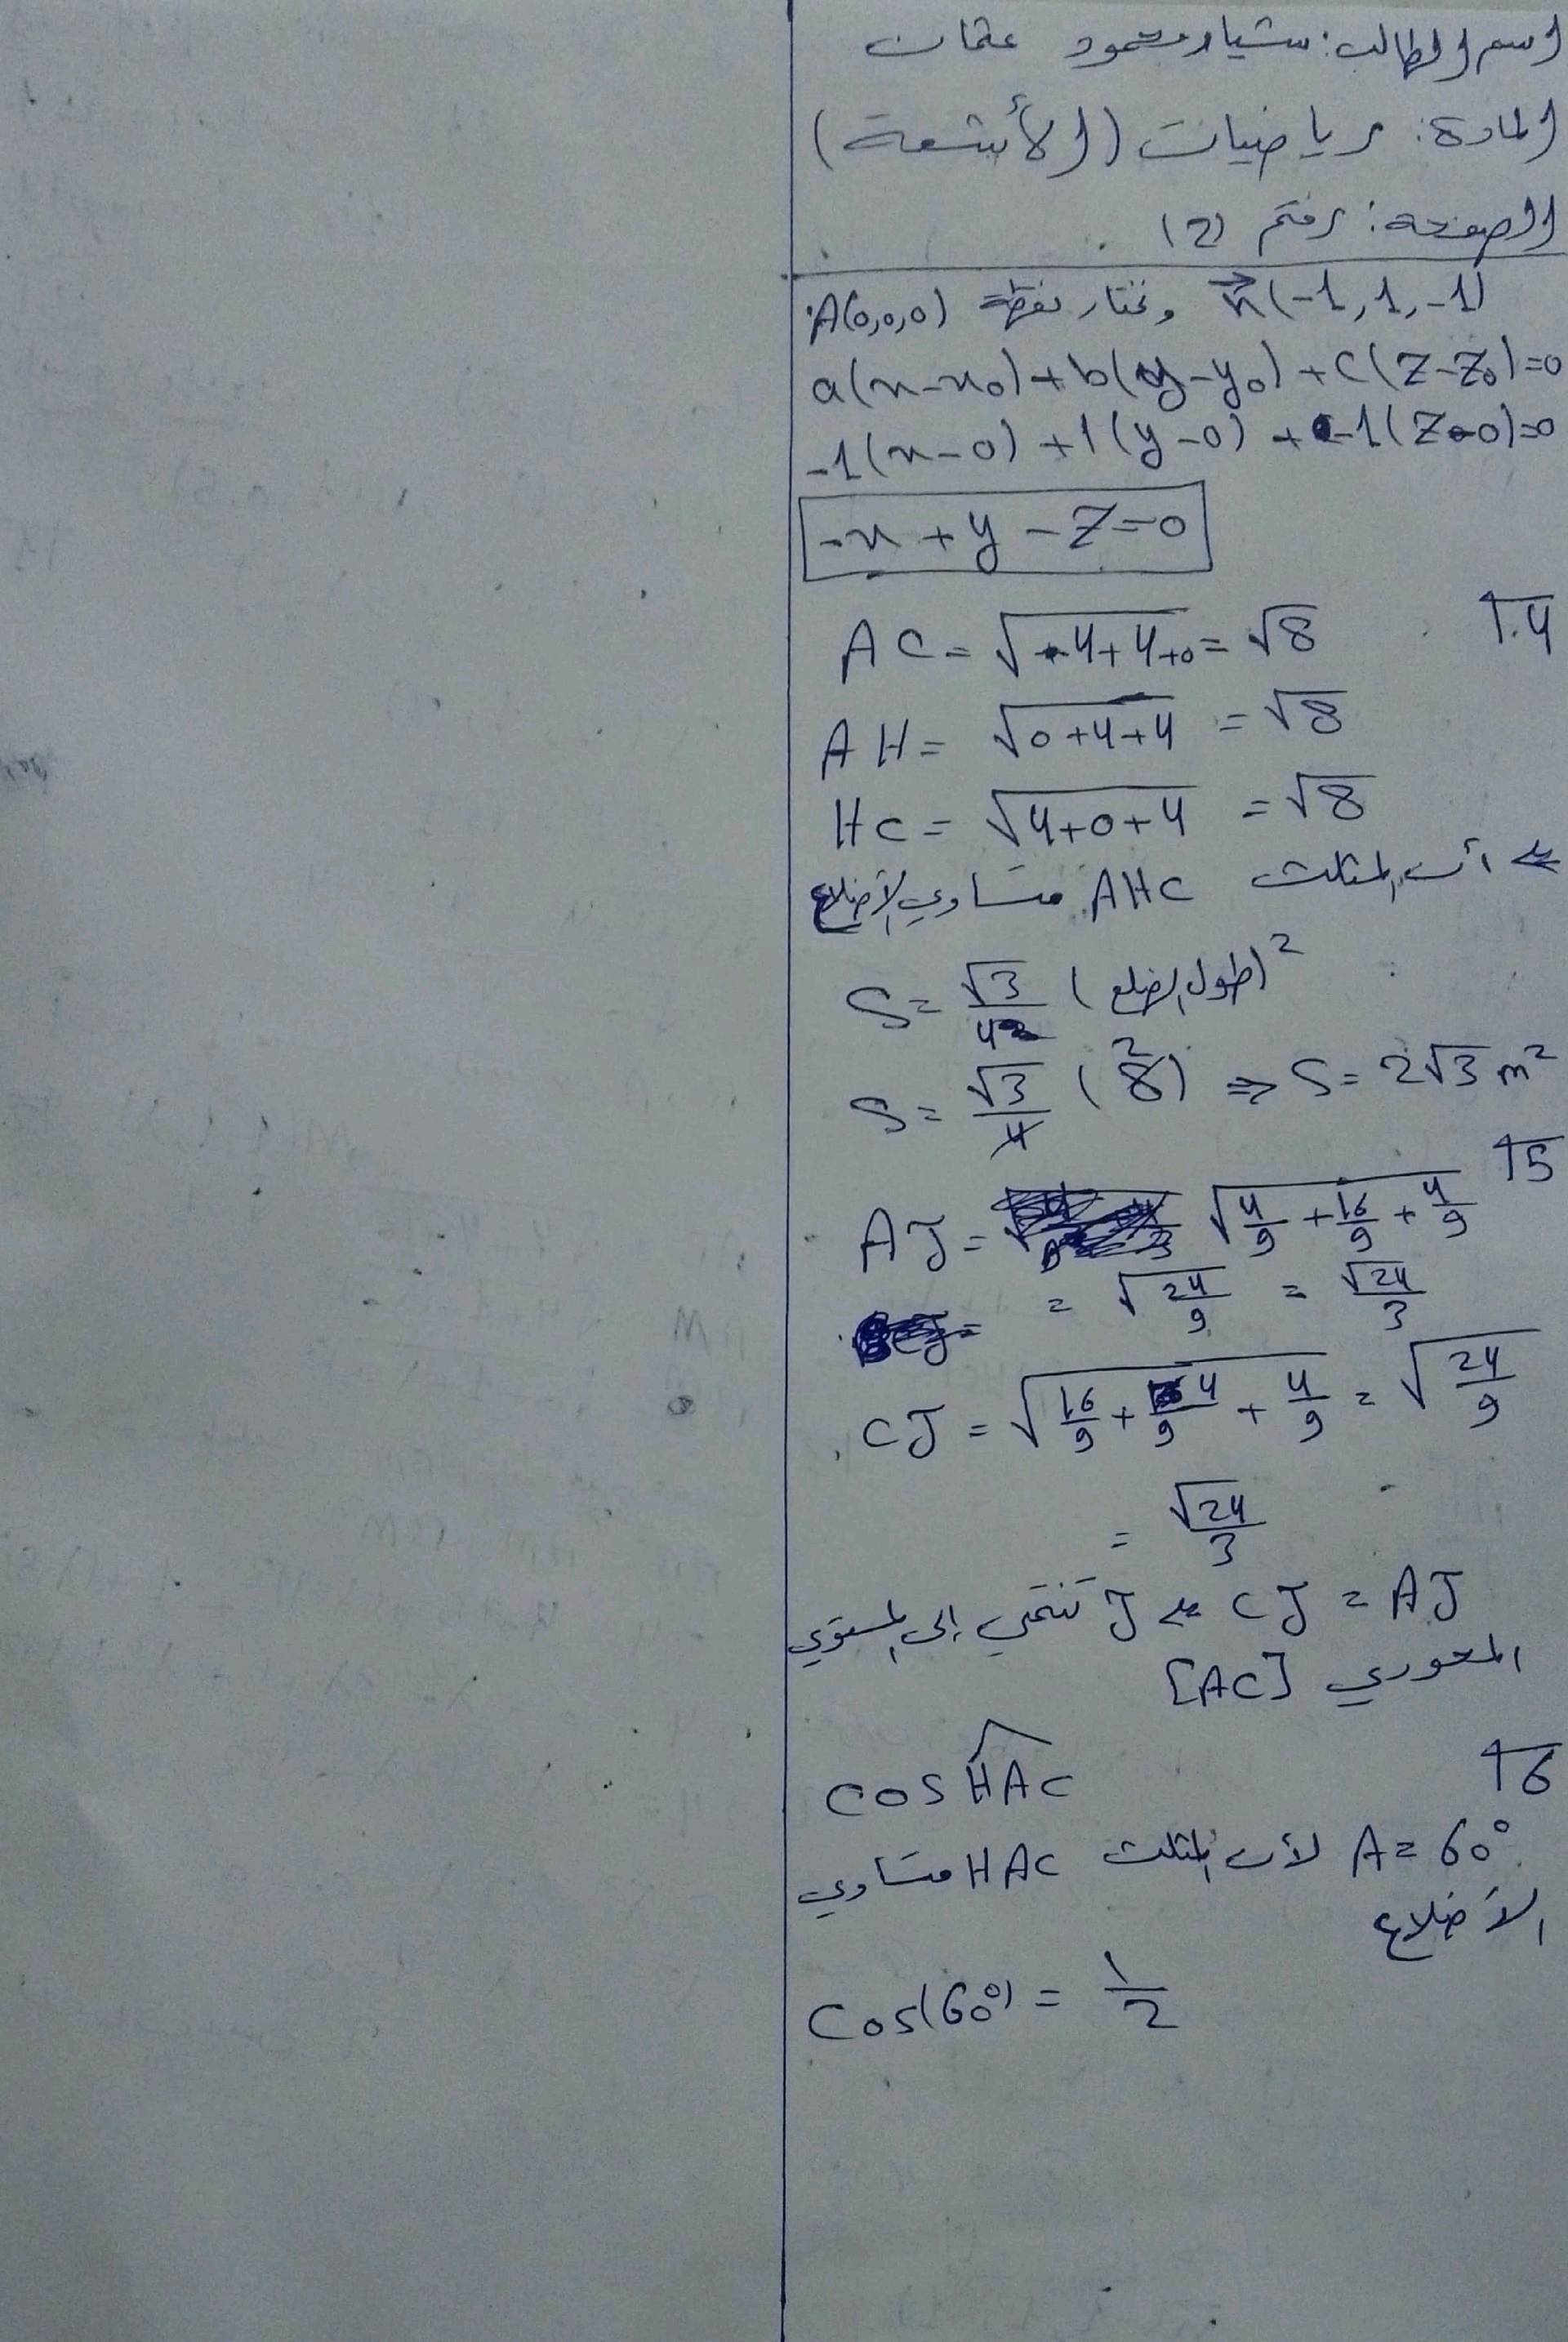 اسم الطالب: شيار محمود عثمان
المادة: رياضيات (الأشعة)
الصفحة: رقم (2)
n(-1,1,-1) ونختار نقطة A(0,0,0)
a(x-x0)+b(y-y0)+c(z-z0)=0
-1(x-0)+1(y-0)+-1(z-0)=0
-x+y-z=0
4
AC=√4+4+0=√8
AH=√0+4+4=√8
HC=√4+0+4=√8
⇐ أن المثلث AHC متساوي الأضلاع
S=√3/4 (طول الضلع)²
S=√3/4 (8) 2 ⇒ S=2√3 m²
5
AJ=√4/9+16/9+4/9
=√24/9=√24/3
CJ=√16/9+4/9+4/9=√24/9
=√24/3
CJ=AJ ⇐ J تنتمي إلى المستوي
المحوري [AC]
6
cos HAC
A=60° لأن المثلث HAC متساوي
الأضلاع
Cos(60°)=1/2